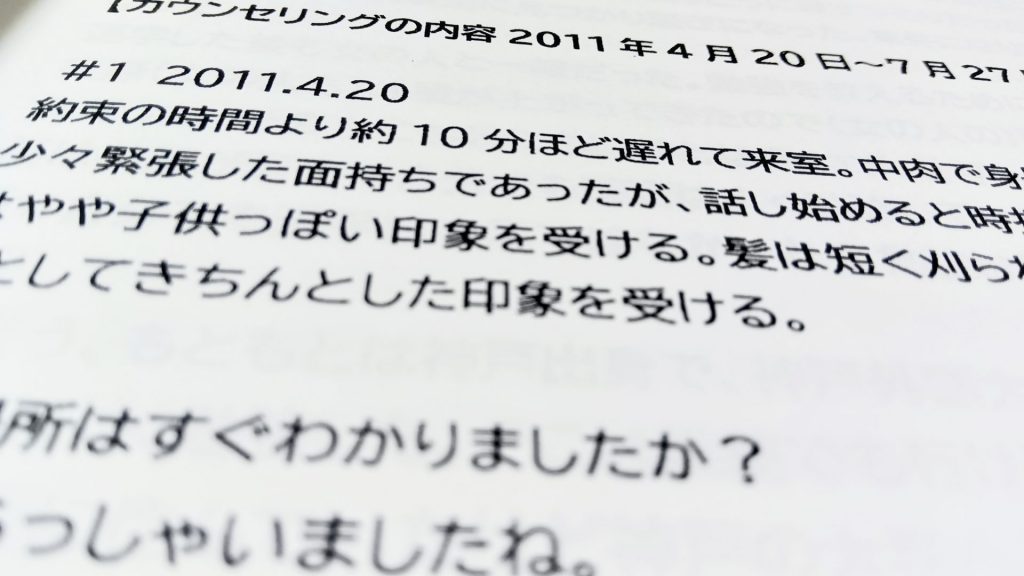 【カウンセリングの内容 2011年4月20日～7月27
#1 2011.4.20
約束の時間より約10分ほど遅れて来室。中肉で身
少々緊張した面持ちであったが、話し始めると時
やや子供っぽい印象を受ける。髪は短く刈ら
としてきちんとした印象を受ける。
所はすぐわかりましたか？
っしゃいましたね。